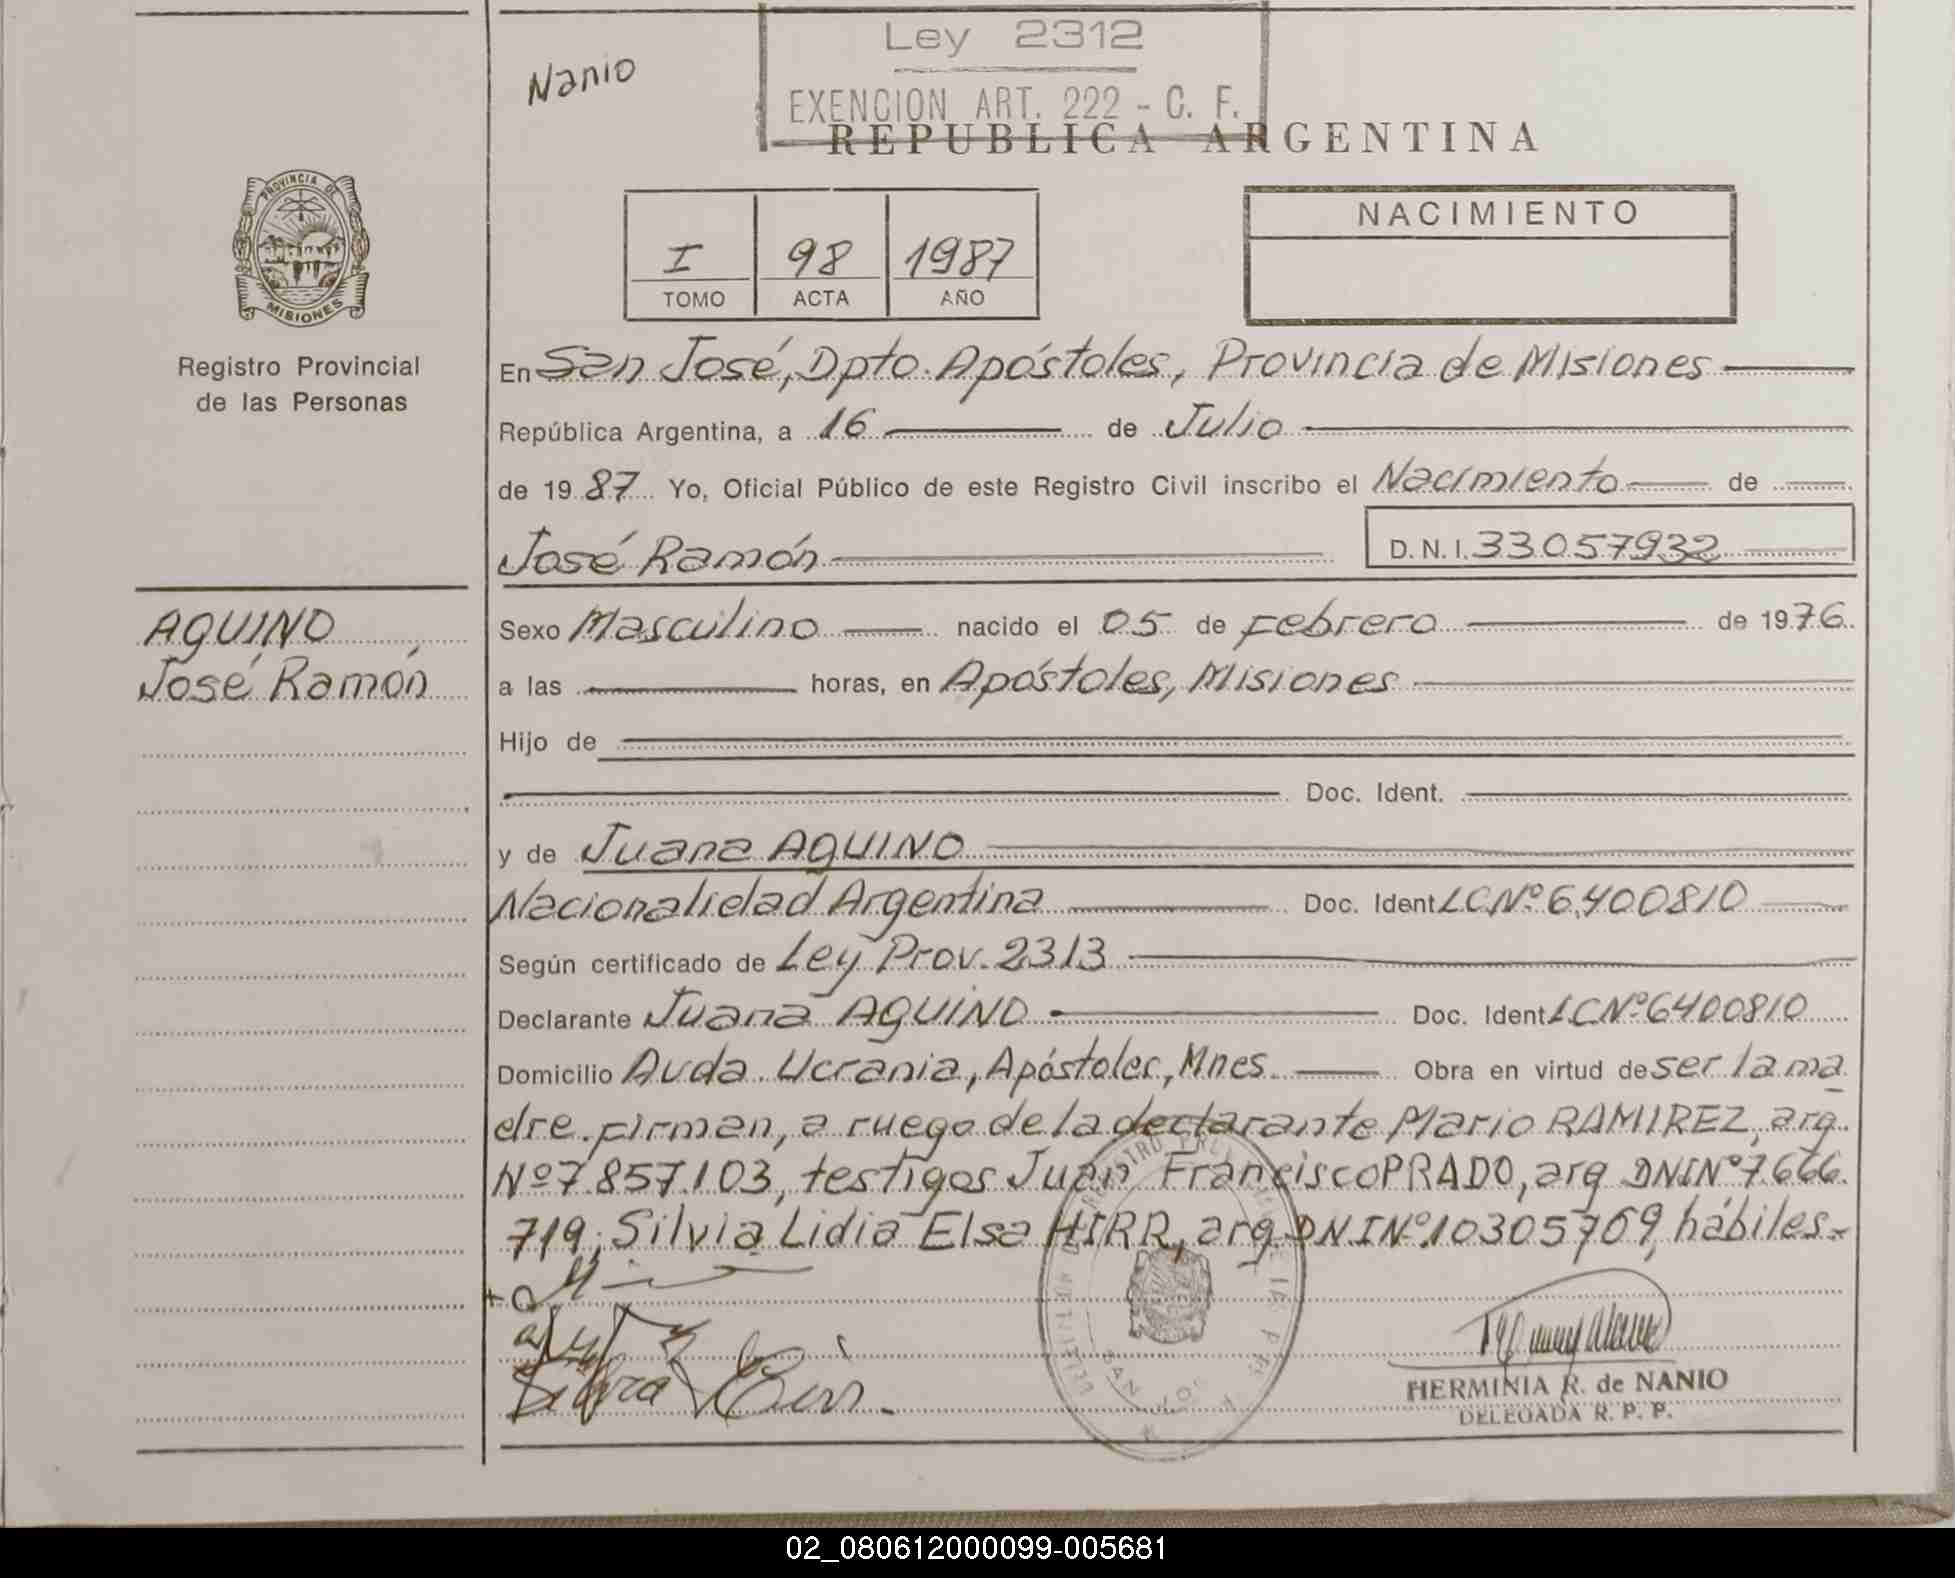 Ley 2312
EXENCION ART. 222 - C. F.
Nanio
REPUBLICA ARGENTINA
PROVINCIA DE
MISIONES
Registro Provincial
de las Personas
I 98 1987
TOMO ACTA AÑO
NACIMIENTO
En San José, Dpto. Apóstoles, Provincia de Misiones
República Argentina, a 16 de Julio
de 19 87 Yo, Oficial Público de este Registro Civil inscribo el Nacimiento de
José Ramón D. N. I. 33057932
AQUINO,
José Ramón
Sexo Masculino nacido el 05 de Febrero de 1976
a las horas, en Apóstoles, Misiones
Hijo de
Doc. Ident.
y de Juana AQUINO
Nacionalidad Argentina Doc. Ident LC Nº 6.400810
Según certificado de Ley Prov. 2313
Declarante Juana AQUINO Doc. Ident LC Nº 6400810
Domicilio Avda. Ucrania, Apóstoles, Mnes. Obra en virtud de ser la ma
dre. firman, a ruego de la declarante Mario RAMIREZ, arg.
Nº 7.857.103, testigos Juan Francisco PRADO, arg DNI Nº 7.666.
719; Silvia Lidia Elsa HIRR, arg. DNI Nº 10305769, hábiles.-
HERMINIA R. de NANIO
DELEGADA R. P. P.
02_080612000099-005681